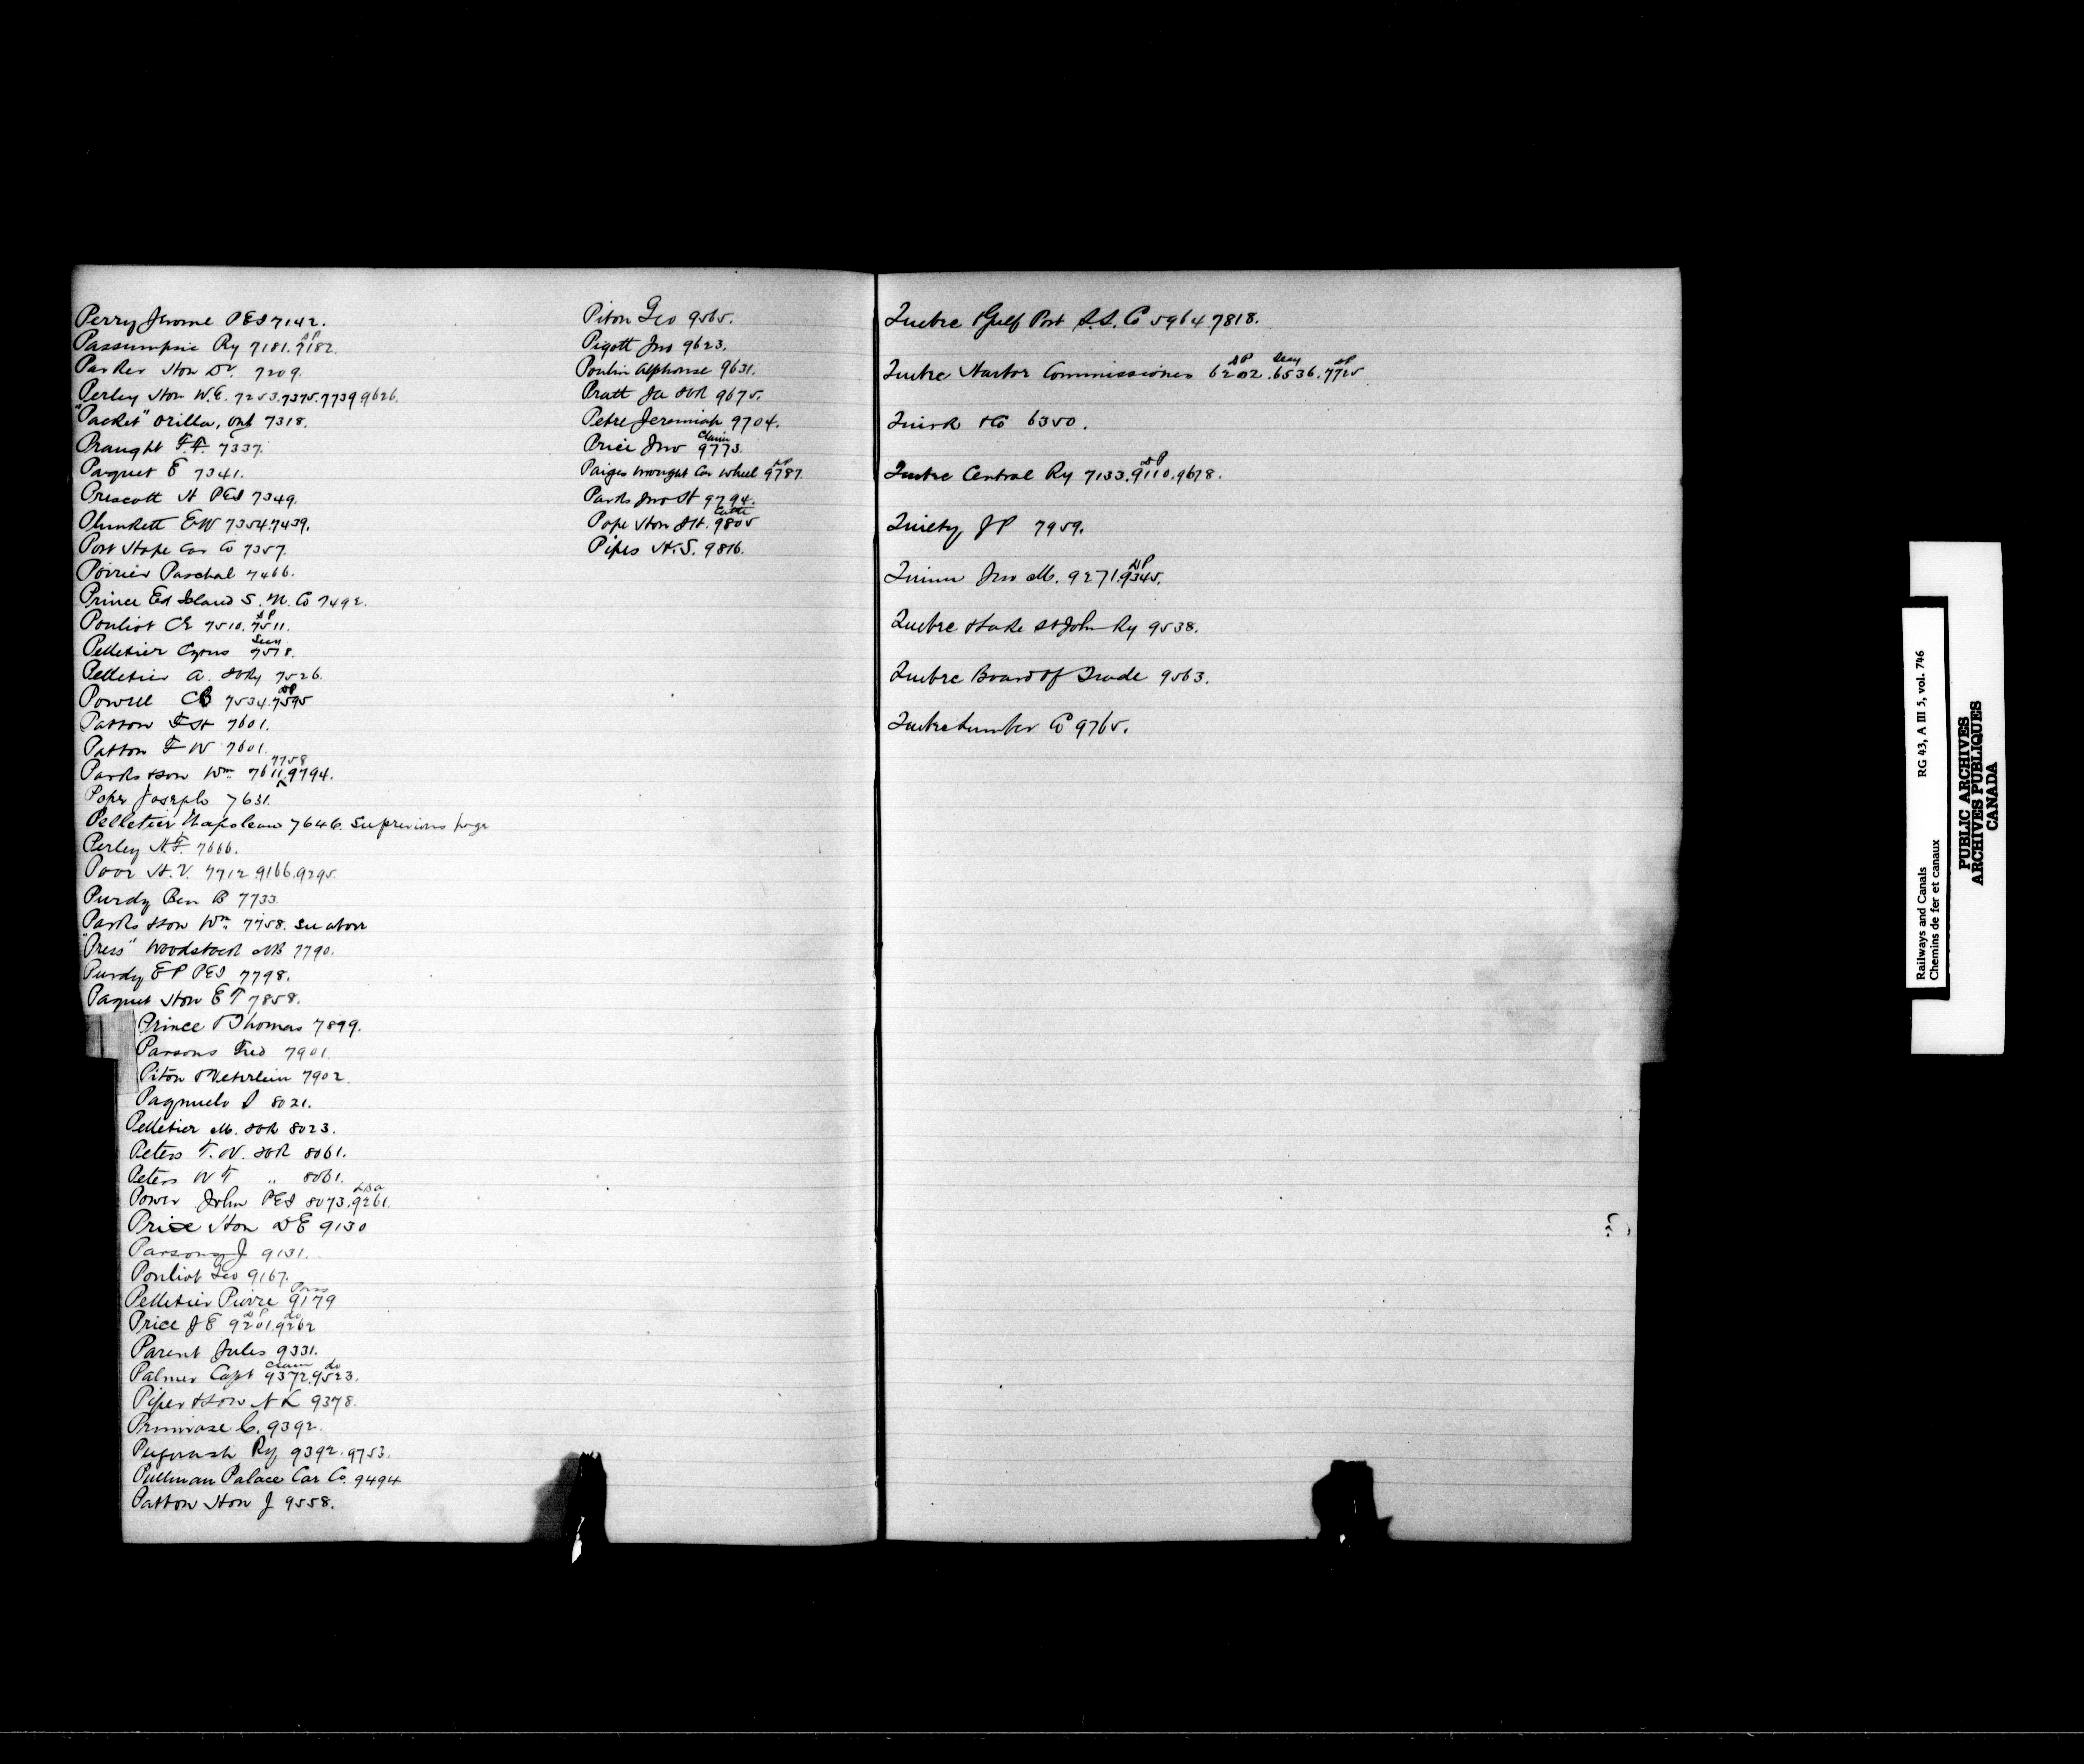 Perry Jerome PEI 7142.
Passumpsic Ry 7181. 7182. DP
Parker Hon Dr. 7209.
Perley Hon W.E. 7253.7375.7739 9626.
"Packet" Orillia, Ont 7318.
Praught F.F. 7337.
Paquet E 7341.
Prescott H PEI 7349.
Plunkett EW 7354.7439.
Port Hope Car Co 7357.
Poirier Paschal 7466.
Prince Ed Island S. N. Co 7492.
Pouliot CE 7510. 7511. DP
Pelletier Cyrus 7518.
Pelletier A. 7526.
Powell CB 7534.7595 DP
Patton F H 7601.
Patton F W 7601.
Parks & Son Wm 7611 7758 9794.
Poper Joseph 7631.
Pelletier Napoleon 7646. See previous page
Perley H.F. 7666.
Poor H.V. 7712 9166.9295.
Purdy Ben B 7733.
Parks & Son Wm 7758. See above
"Press" Woodstock NB 7790.
Purdy E P PEI 7798.
Paquet Hon E T 7858.
Prince Thomas 7899.
Parsons Fred 7901.
Piton 7902.
Pagnuelo S 8021.
Pelletier M. 8023.
Peters T. W. 8061.
Peters W T " 8061.
Power John PEI 8073.9261.
Price Hon D E 9130
Parsons J 9131.
Pouliot Geo 9167.
Pelletier Pierre 9179 Pass
Price J E 9201.9262 DP do
Parent Jules 9331.
Palmer Capt 9372.9523. Claim do
Piper & Son N L 9378.
Primrose C. 9392.
Pugwash Ry 9392.9753.
Pullman Palace Car Co. 9494
Patton Hon J 9558.
Piton Geo 9565.
Pigott Jno 9623.
Poulin Alphonse 9631.
Pratt 9675.
Petre Jeremiah 9704.
Price Jno 9773. Claim
Paiges Wrought Car Wheel 9787. DP
Parks Jno H 9794.
Pope Hon J H. 9805 Cattle
Pipes H.S. 9816.
Quebec & Gulf Port S.S. Co 5964 7818.
Quebec Harbor Commissioners 6202 .6536.7725 DP DP
Quirk & Co 6350.
Quebec Central Ry 7133.9110.9678. DP
Quilty J P 7959.
Quinn Jno M. 9271.9345. DP
Quebec & Lake St John Ry 9538.
Quebec Board of Trade 9563.
Quebec Lumber Co 9765.
Railways and Canals RG 43, A III 5, vol. 746
Chemins de fer et canaux
PUBLIC ARCHIVES
ARCHIVES PUBLIQUES
CANADA